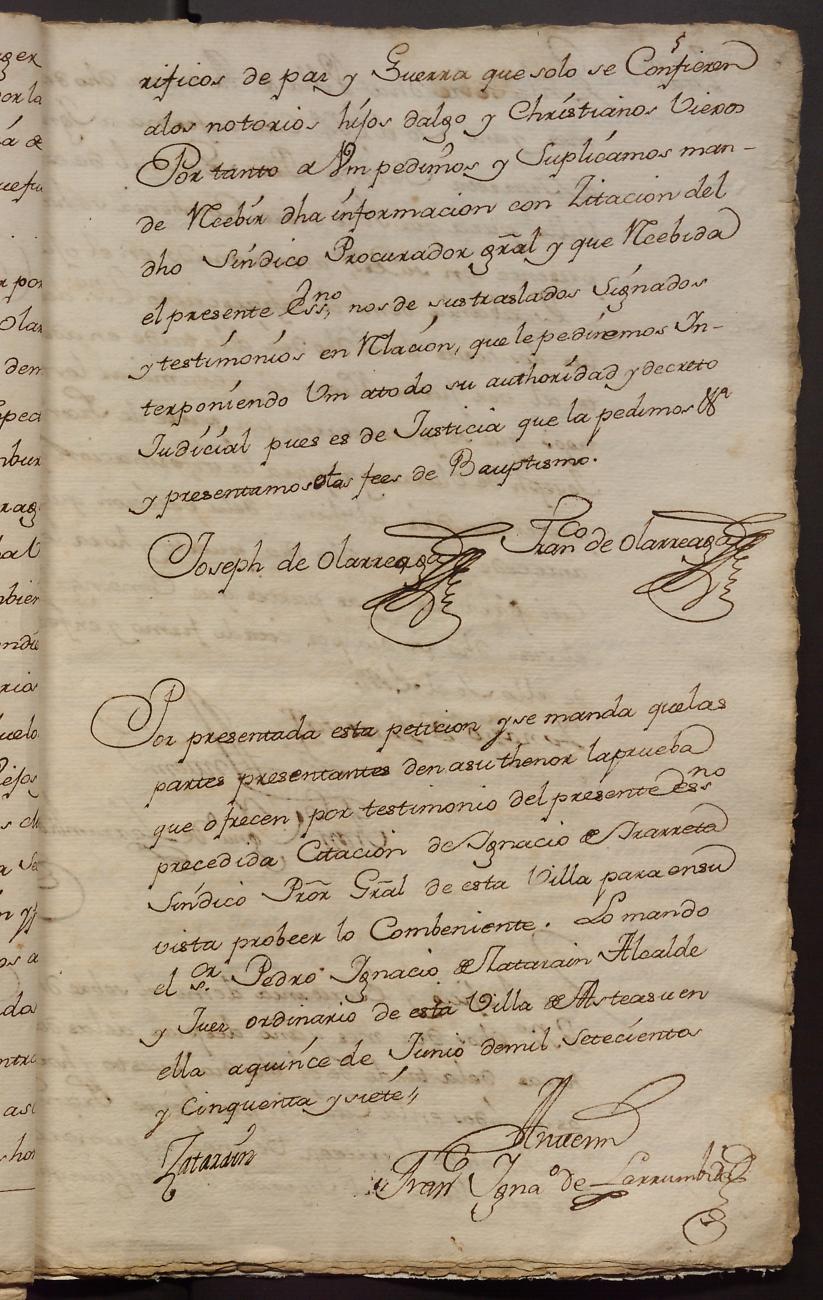 rificos de paz y Guerra que solo se Confieren
alos notorios hijos dalgo y Christianos Viexos
Por tanto a Vm pedimos y Suplicamos man-
de Recebir dha informacion con Zitacion del
dho Sindico Procurador gral y que Recebida
el presente Essno nos de sus traslados Signados
y testimonios en Relacion, que le pediremos In-
terponiendo Vm atodo su authoridad y decreto
Judicial pues es de Justicia que la pedimos
y presentamos las fees de Bauptismo.
Joseph de Olarreaga Franco de Olarreaga
Por presentada esta peticion y se manda que las
partes presentantes den asu thenor la prueba
que ofrecen por testimonio del presente Essno
precedida Citacion de Ignacio de Irarreta
Sindico Pror Gral de esta Villa para en su
vista probeer lo Combeniente. Lo mando
el Sor Pedro Ignacio de Zatarain Alcalde
y Juez ordinario de esta Villa de Asteasu en
ella a quince de Junio de mil Setecientos
y Cinquenta y siete,,
Zatarain Antemi
Fran Ignao de Larrumbide